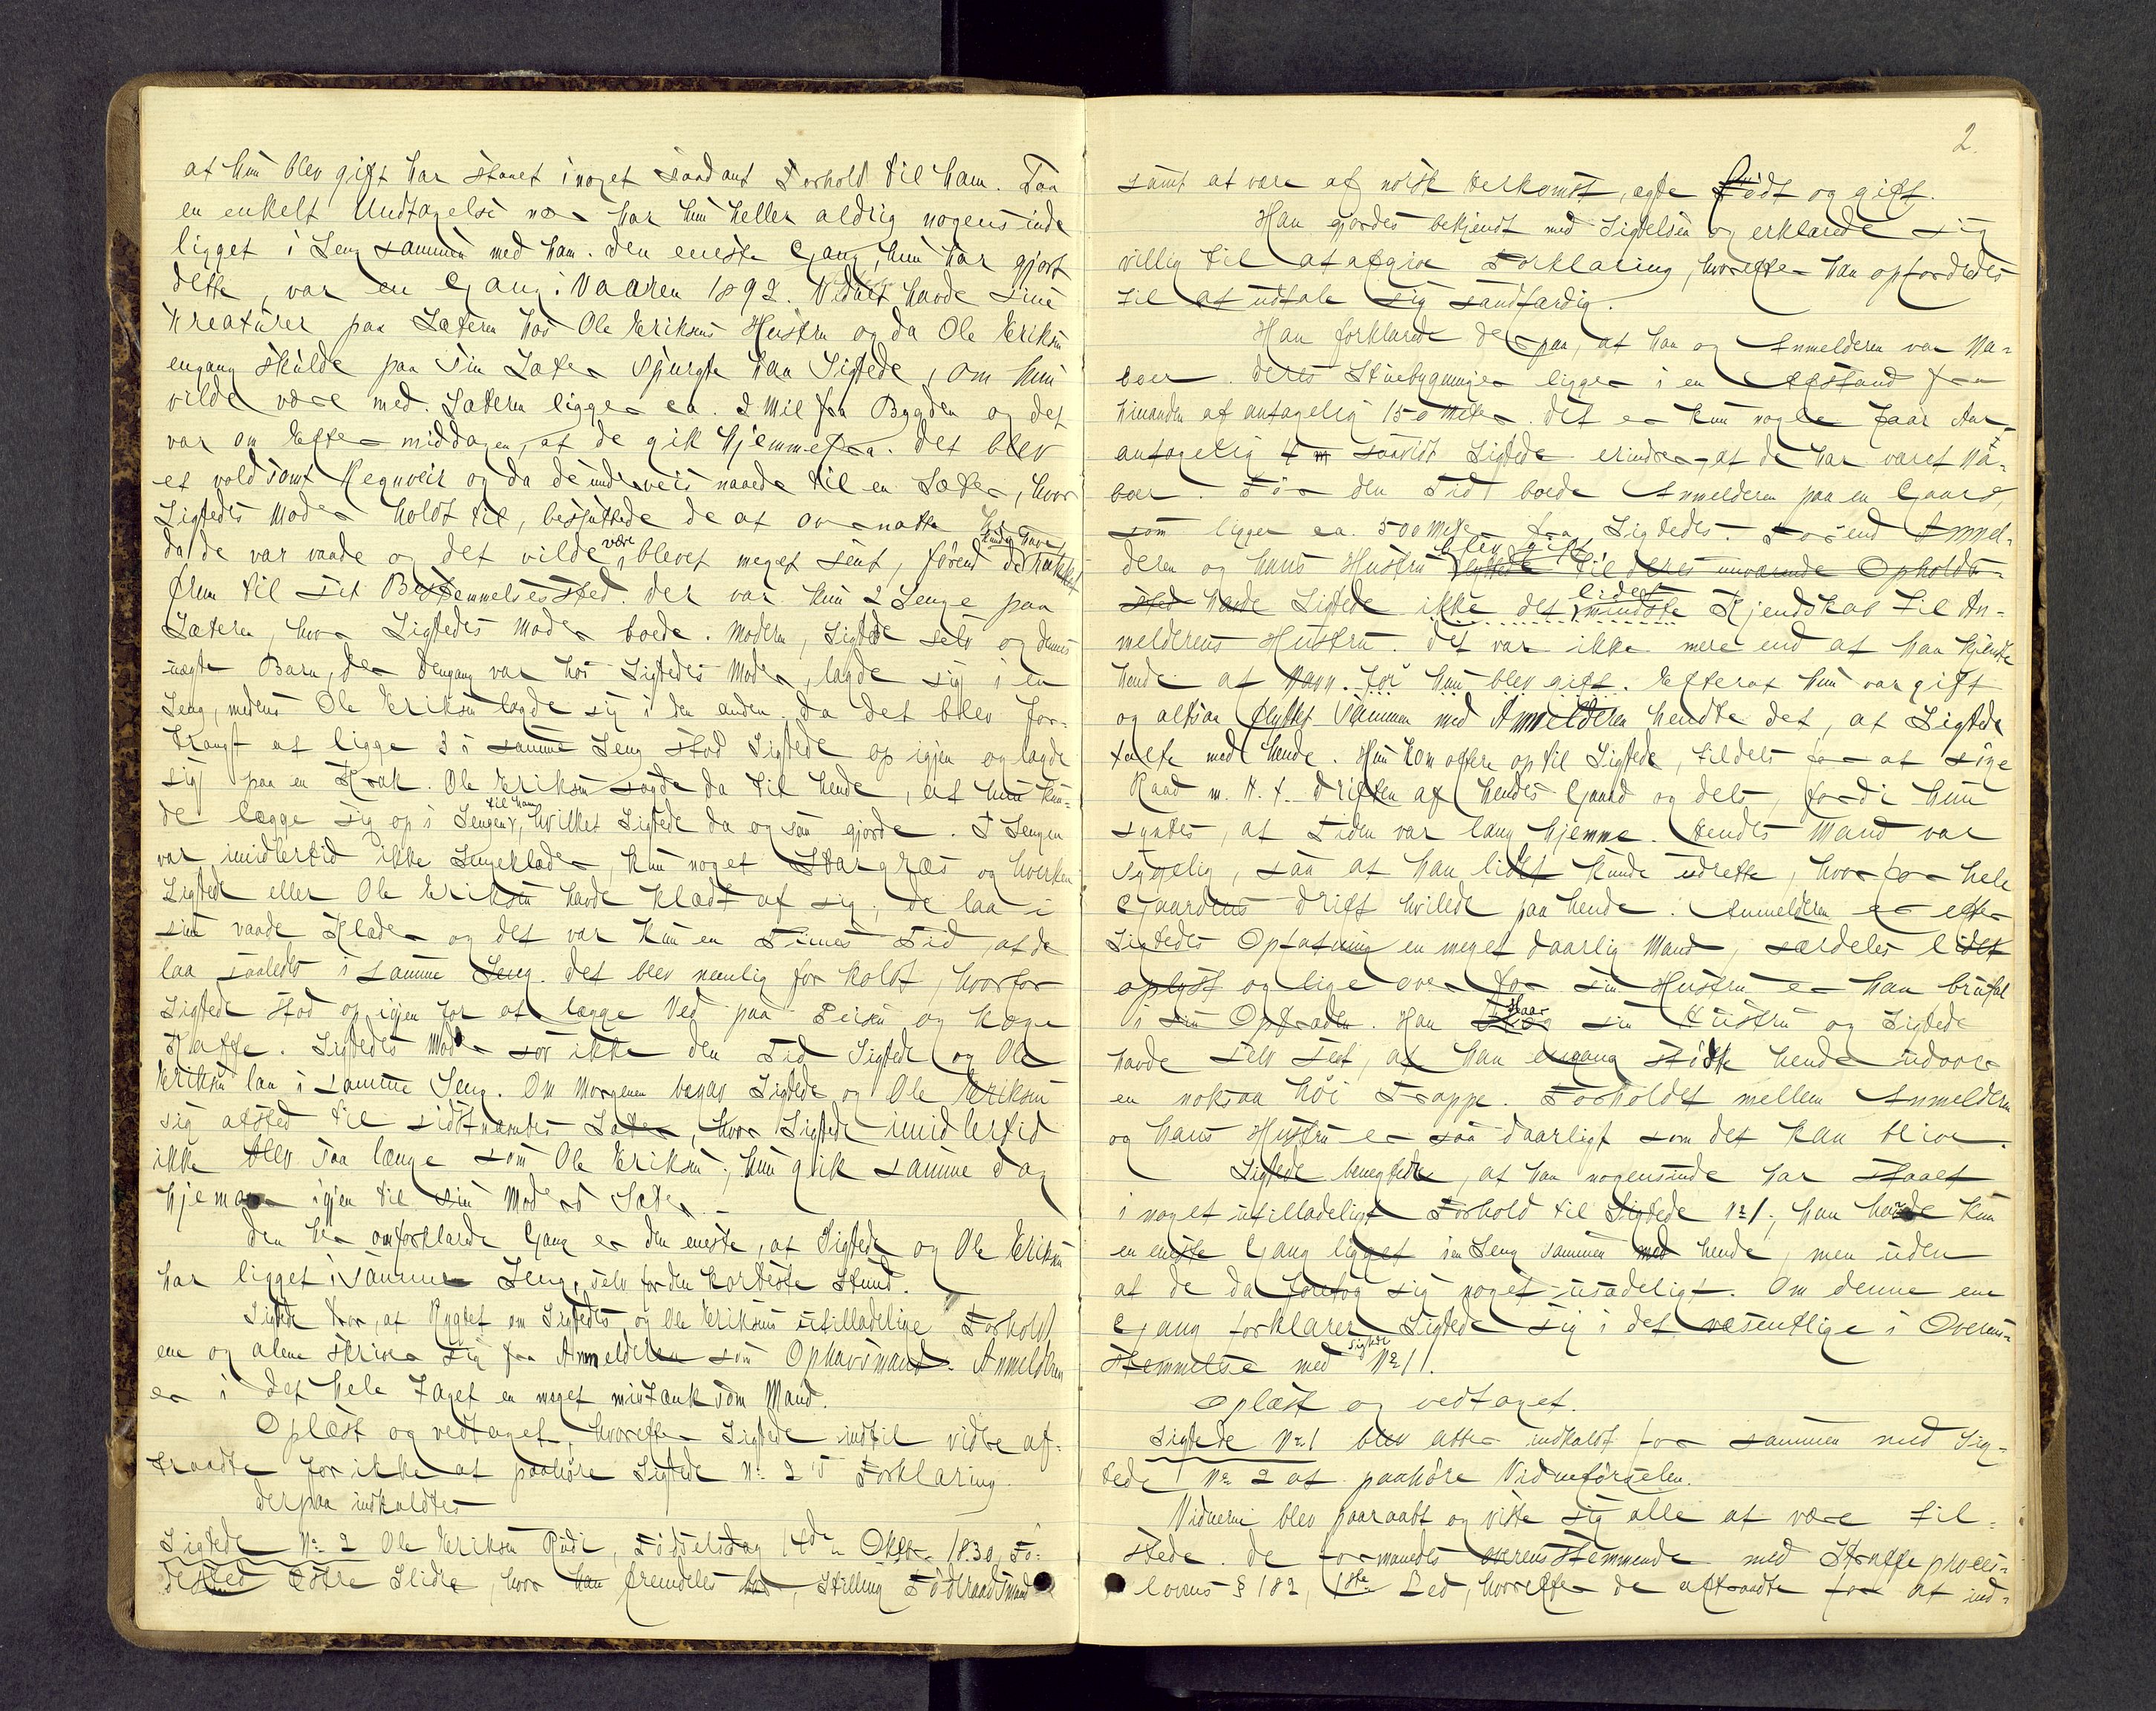 at hun blev gift har staaet i noget saadant Forhold til ham. Paa
en enkelt Undtagelse nær har hun heller aldrig nogensinde
ligget i Seng sammen med ham. Den eneste Gang, hun har gjort
dette, var en Gang i Vaaren 1892. Vidnet havde sine
Kreaturer paa Sætern hos Ole Eriksens Hustru og da Ole Eriksen
engang skulde paa sin Sæter spurgte han Sigtede, om hun
vilde være med. Sætern ligger ca. 2 Mil fra Bygden og det
var om Eftermiddagen, at de gik hjemmefra. Det blev
et voldsomt Regnveir og da de underveis naaede til en Sæter, hvor
Sigtedes Moder holdt til, besluttede de at overnatte her
da de var vaade og det vilde være blevet meget sent, førend de kunde have rukket
frem til sit Bestemmelsessted. Der var kun 2 Senge paa
Sætern, hvor Sigtedes Moder boede. Modern, Sigtede selv og dennes
uægte Barn, der dengang var hos Sigtedes Moder, lagde sig i en
Seng, medens Ole Eriksen lagde sig i den anden. Da det blev for
trangt at ligge 3 i samme Seng stod Sigtede op igjen og lagde
sig paa en Krak. Ole Eriksen sagde da til hende, at hun kun-
de lægge sig op i Sengen til ham, hvilket Sigtede da og saa gjorde. I Sengen
var imidlertid ikke Sengeklæder, kun noget Stargræs og hverken
Sigtede eller Ole Eriksen havde klædt af sig; de laa i
sine vaade Klæder og det var kun en Times Tid, at de
laa saaledes i samme Seng. Det blev nemlig for koldt, hvorfor
Sigtede stod op igjen for at lægge Ved paa Peisen og koge
Kaffe. Sigtedes Moder sov ikke den Tid Sigtede og Ole
Eriksen laa i samme Seng. Om Morgenen begav Sigtede og Ole Eriksen
sig afsted til sidstnævntes Sæter, hvor Sigtede imidlertid
ikke blev saa længe som Ole Eriksen; hun gik samme Dag
hjem igjen til sin Moders Sæter.
Den her omforklarede Gang er den eneste, at Sigtede og Ole Eriksen
har ligget i samme Seng, selv for den korteste Stund.
Sigtede tror, at Rygtet om Sigtedes og Ole Eriksens utilladelige Forhold
ene og alene skriver sig fra Anmelderen som Ophavsmand. Anmelderen
er i det hele taget en meget mistænksom Mand.
Oplæst og vedtaget, hvorefter Sigtede indtil videre af-
traadte for ikke at paahøre Sigtede No 2's Forklaring.
Derpaa indkaldtes
Sigtede No 2 Ole Eriksen Rudi, Fødselsdag 14de Oktbr 1830, Fø-
dested Østre Slidre, hvor han fremdeles bor, Stilling Føderaadsmand
2.
samt at være af norsk Herkomst, ægte født og gift.
Han gjordes bekjendt med Sigtelsen og erklærede sig
villig til at afgive Forklaring, hvorefter han opfordredes
til at udtale sig sandfærdig.
Han forklarede derpaa, at han og Anmelderen var Na-
boer. Deres Stuebygninger ligger i en Afstand fra
hinanden af antagelig 150 Meter. Det er kun nogle faar Aar
antagelig 4 saavidt Sigtede erindrer, at de har været Na-
boer. Før den Tid boede Anmelderen paa en Gaard,
som ligger ca. 500 Meter fra Sigtedes. Førend Anmel-
deren og hans Hustru blev gift flyttede til deres nuværende Opholds-
sted havde Sigtede ikke det mindste lidet Kjendskab til An-
melderens Hustru. Det var ikke mere end at han kjendte
hende af Navn. Før hun blev gift. Efterat hun var gift
og altsaa flyttet sammen med Anmelderen hendte det, at Sigtede
talte med hende. Hun kom oftere op til Sigtede, tildels for at søge
Raad m. H. t. Driften af hendes Gaard og dels, fordi hun
syntes, at Tiden var lang hjemme. Hendes Mand var
sygelig, saa at han lidet kunde udrette, hvorfor hele
Gaardens Drift hvilede paa hende. Anmelderen er efter
Sigtedes Opfatning en meget daarlig Mand, særdeles lidet
oplyst og lige over for sin Hustru er han brutal
i sin Optræden. Han slaar sin Hustru og Sigtede
havde selv seet, at han engang stødte hende udover
en noksaa høi Trappe. Forholdet mellem Anmelderen
og hans Hustru er saa daarligt som det kan blive.
Sigtede benegtede, at han nogensinde har staaet
i noget utilladeligt Forhold til Sigtede No 1; han havde kun
en eneste Gang ligget i en Seng sammen med hende, men uden
at de da foretog sig noget usædeligt. Om denne ene
Gang forklarer Sigtede sig i det væsentlige i Overens-
stemmelse med Sigtede No 1.
Oplæst og vedtaget.
Sigtede No 1 blev atter indkaldt for sammen med Sig-
tede No 2 at paahøre Vidneførselen.
Vidnerne blev paaraabt og viste sig alle at være til-
stede. De formanedes overensstemmende med Straffeproces-
lovens § 182, 1ste Led, hvorefter de aftraadte for at ind-